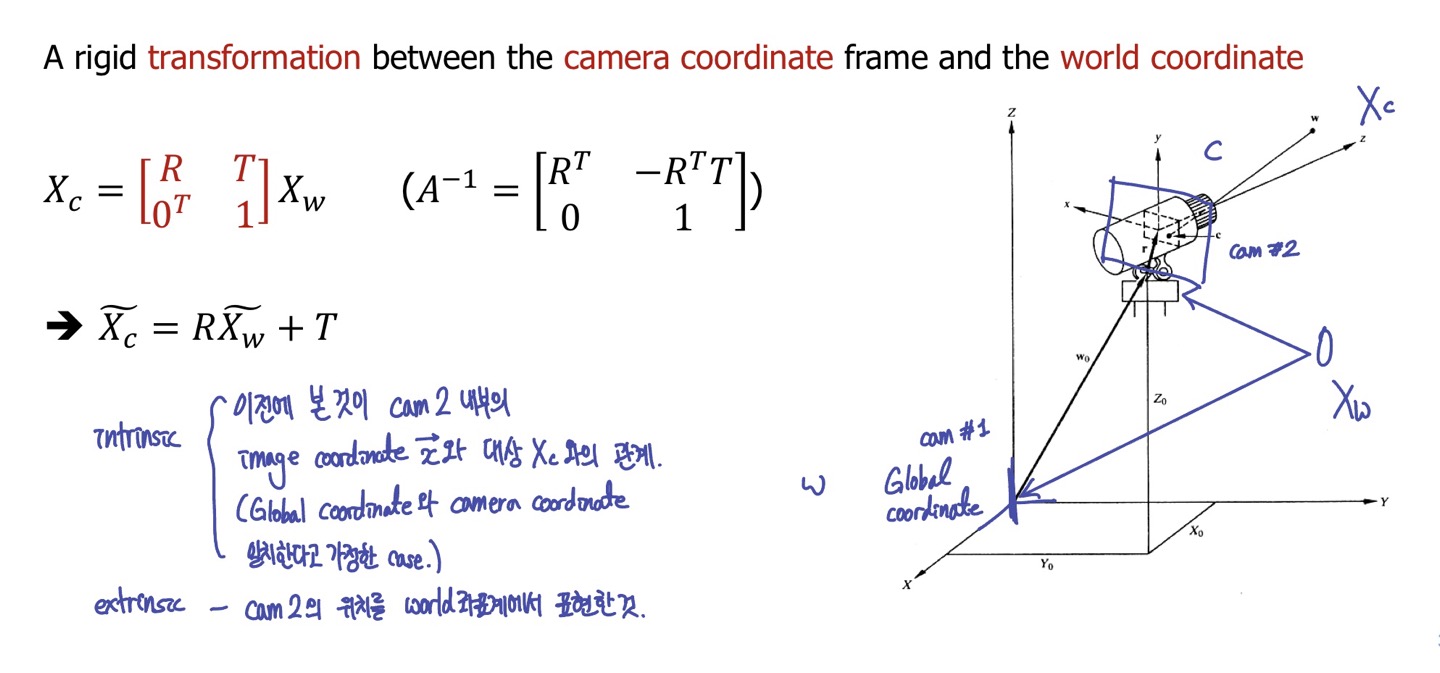 A rigid transformation between the camera coordinate frame and the world coordinate
X_c = [R T; 0^T 1] X_w (A^{-1} = [R^T -R^T T; 0 1])
➔ \widetilde{X_c} = R\widetilde{X_w} + T
intrinsic
이전에 본 것이 cam 2 내부의
image coordinate \vec{x}와 대상 Xc 와의 관계.
(Global coordinate와 camera coordinate
일치한다고 가정한 case.)
extrinsic - cam 2의 위치를 world 좌표계에서 표현한 것.
Z
w
Xc
z
y
C
x
c
r
cam #2
w₀
O
Z₀
Xw
cam #1
W
Global
coordinate
Y
X₀
Y₀
X